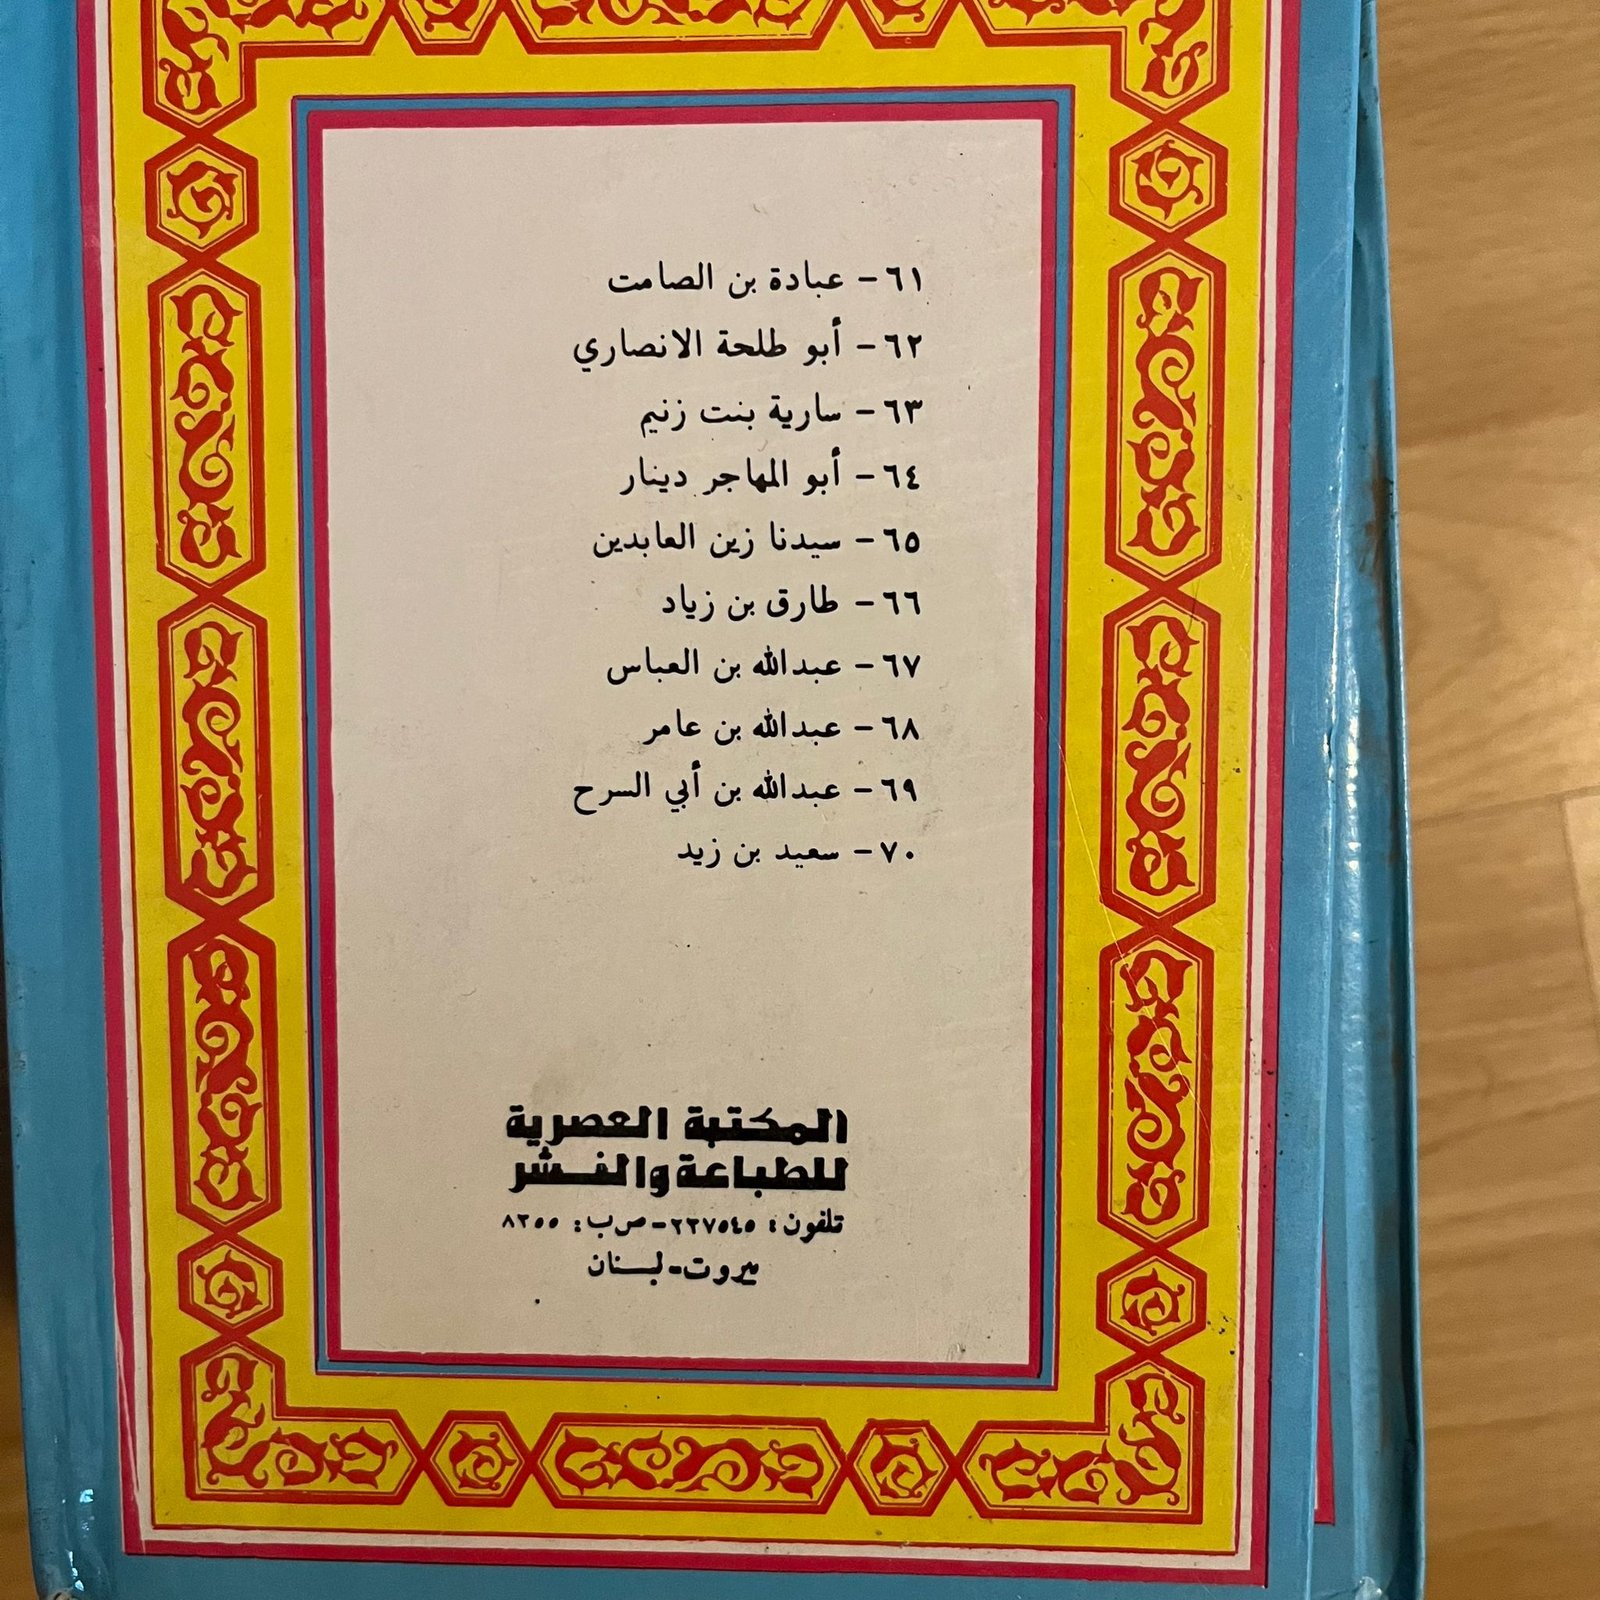 ٦١ - عبادة بن الصامت
٦٢ - أبو طلحة الانصاري
٦٣ - سارية بنت زنيم
٦٤ - أبو المهاجر دينار
٦٥ - سيدنا زين العابدين
٦٦ - طارق بن زياد
٦٧ - عبدالله بن العباس
٦٨ - عبدالله بن عامر
٦٩ - عبدالله بن أبي السرح
٧٠ - سعيد بن زيد
المكتبة العصرية
للطباعة والنشر
تلفون: ٢٣٧٥٤٥ - ص ب: ٨٣٥٥
بيروت - لبنان